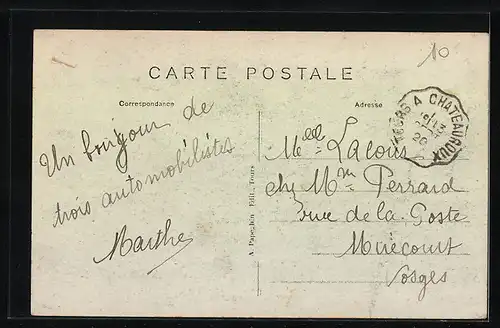 10
CARTE POSTALE
Correspondance
Adresse
TOURS A CHATEAUROUX
20
Un bonjour de
trois automobilistes
Marthe
A. Papeghin Edit., Tours
Melle Lalous
chz Mme Perrard
rue de la Poste
Mirecourt
Vosges